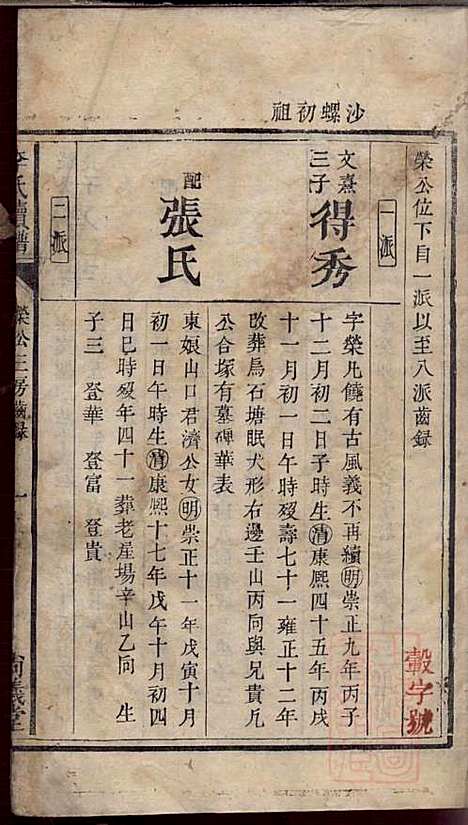 沙螺初祖
榮公位下自一派以至八派齒錄
一派
文熹三子
得秀
字榮凡饒有古風義不再續明崇正九年丙子
十二月初二日子時生清康熙四十五年丙戌
十一月初一日午時歿壽七十一雍正十二年
改葬烏石塘眠犬形右邊壬山丙向與兄貴凡
公合塚有墓碑華表
配
張氏
東娘山口君濟公女明崇正十一年戊寅十月
初一日午時生清康熙十七年戊午十月初四
日巳時歿年四十一葬老屋場辛山乙向 生
子三 登華 登富 登貴
二派
李氏續譜
榮公三房齒錄
一
尚義堂
轂字號